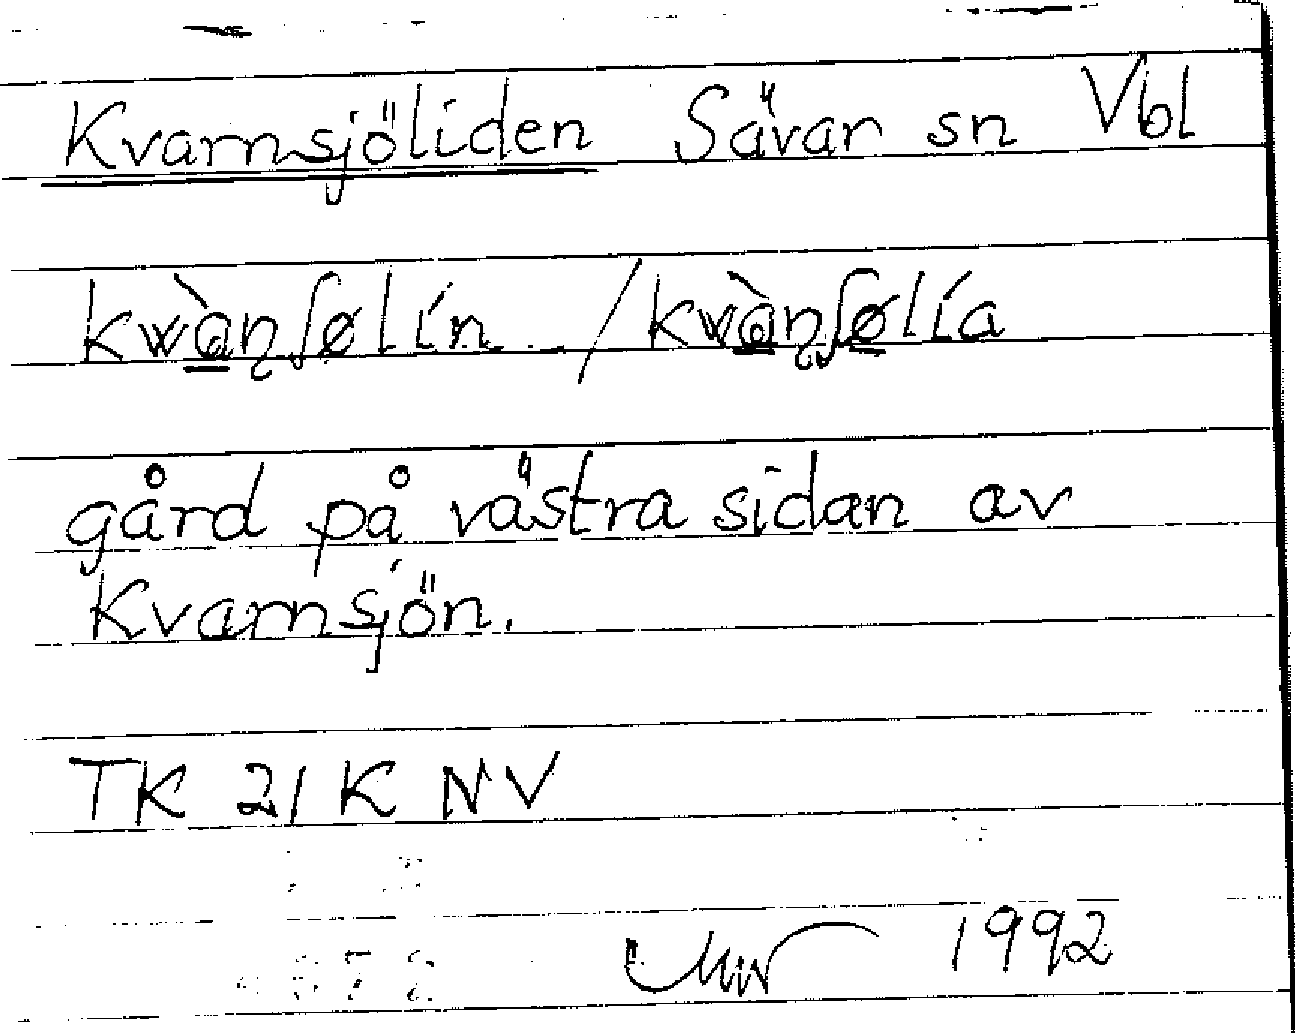 Kvarnsjöliden Sävar sn Vbl
kwànʃølín / kwànʃølía
gård på västra sidan av
Kvarnsjön.
TK 21 K NV
1992